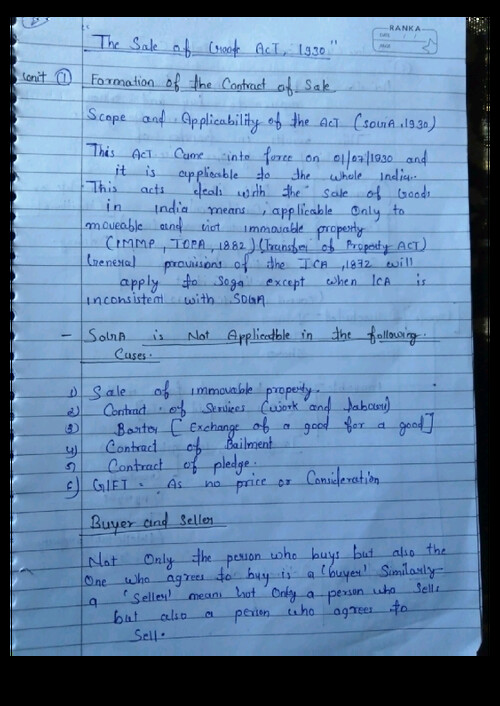 RANKA
DATE
PAGE
"The Sale of Goods Act, 1930"
Unit ① Formation of the Contract of Sale
Scope and Applicability of the Act (SOGA, 1930)
This Act Came into force on 01/07/1930 and
it is applicable to the whole India.
This acts deals with the sale of Goods
in India means, applicable Only to
moveable and not immovable property
(IMMP, TOPA, 1882) (Transfer of Property ACT)
General provisions of the ICA, 1872 will
apply to Soga except when ICA is
inconsistent with SOGA
- SOGA is Not Applicable in the following
Cases.
1) Sale of immovable property.
2) Contract of Services (work and labour)
3) Barter [Exchange of a good for a good]
4) Contract of Bailment
5) Contract of pledge.
6) GIFT. As no price or Consideration
Buyer and Seller
Not Only the person who buys but also the
One who agrees to buy is a 'buyer' Similarly
a 'Seller' means not Only a person who Sells
but also a person who agrees to
Sell.